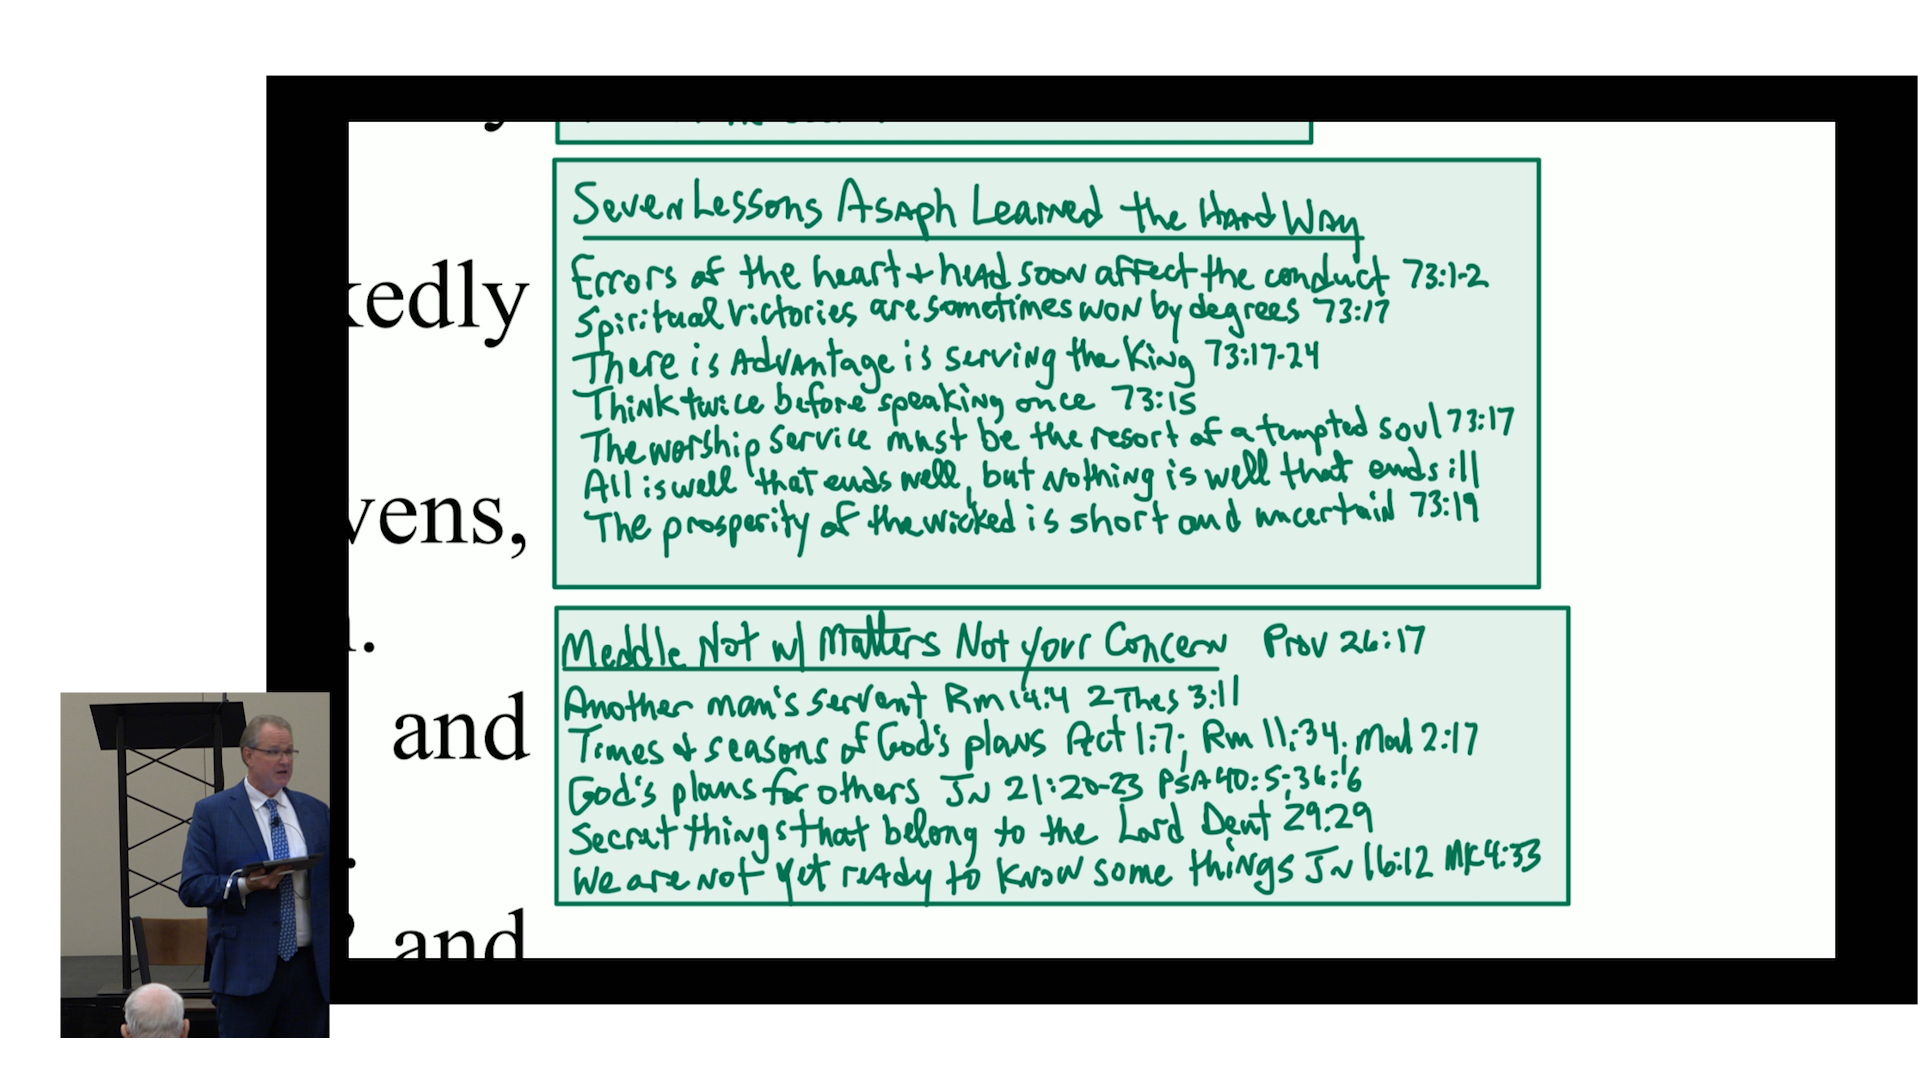 Seven Lessons Asaph Learned the Hard Way
Errors of the heart + head soon affect the conduct 73:1-2
kedly
Spiritual victories are sometimes won by degrees 73:17
There is Advantage is serving the King 73:17-24
Think twice before speaking once 73:15
The worship service must be the resort of a tempted soul 73:17
All is well that ends well, but nothing is well that ends ill
vens,
The prosperity of the wicked is short and uncertain 73:19
Meddle Not w/ Matters Not your Concern Prov 26:17
Another man's servent Rm 14:4 2 Thes 3:11
and
Times + seasons of God's plans Act 1:7; Rm 11:34; Mal 2:17
God's plans for others Jn 21:20-23 PSA 40:5; 36:6
Secret things that belong to the Lord Deut 29:29
We are not yet ready to know some things Jn 16:12 Mk 4:33
and